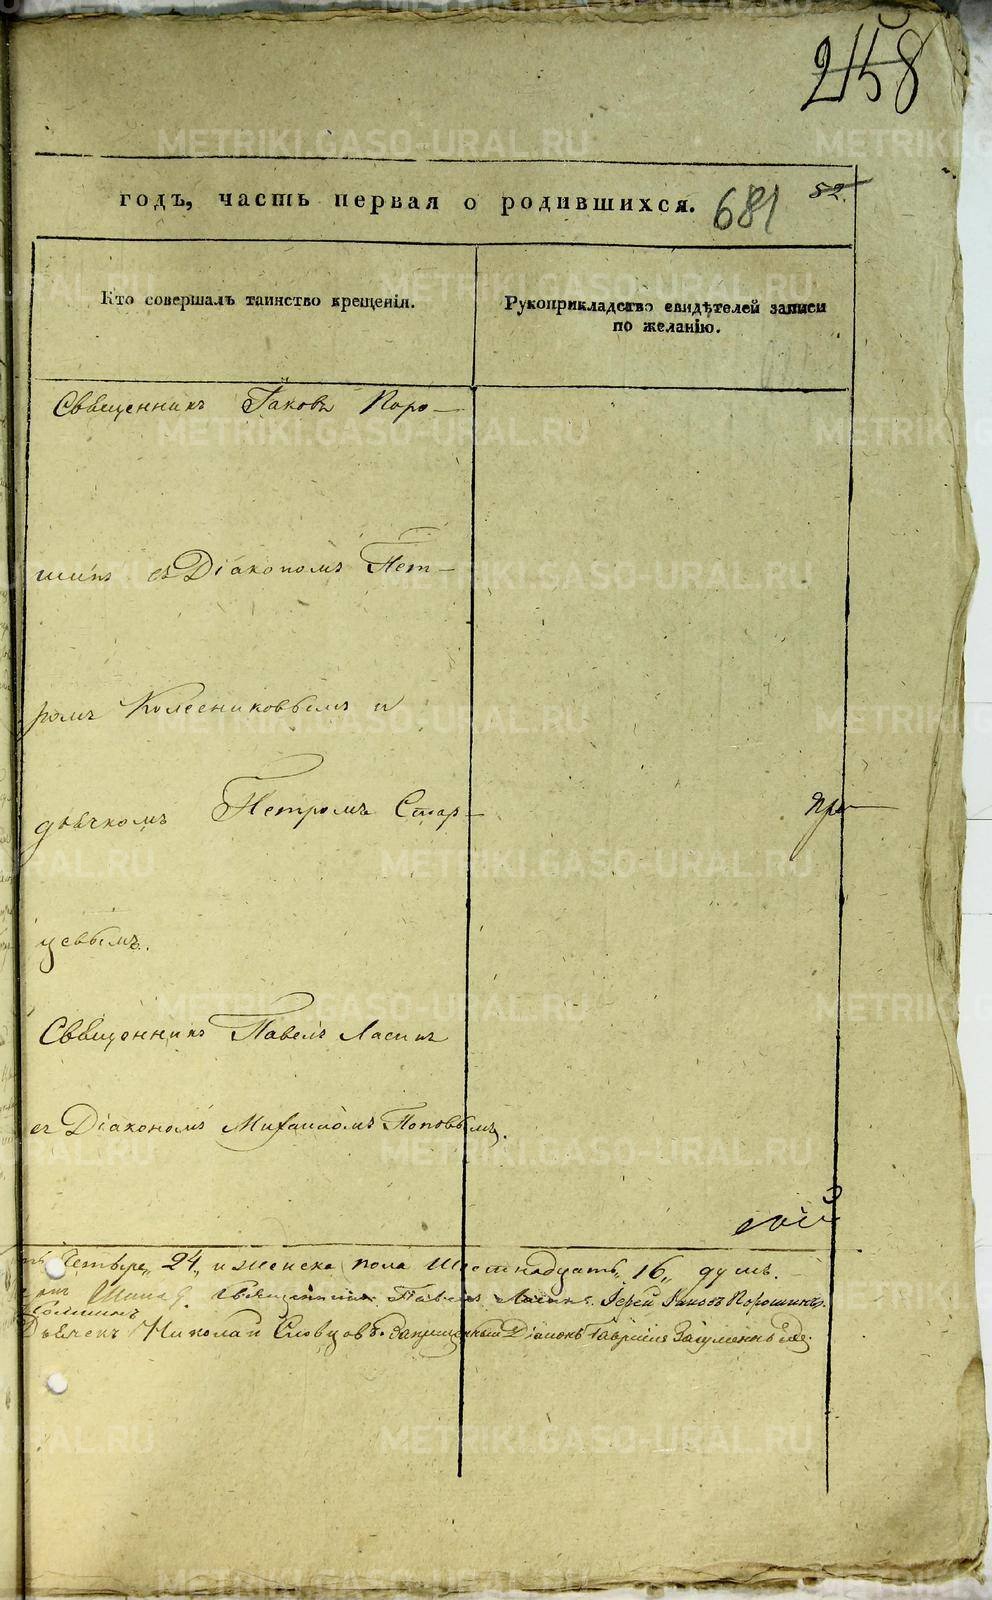 258
годъ, часть первая о родившихся. 681 52.
Кто совершалъ таинство крещенія.
Рукоприкладство свидѣтелей записи
по желанію.
Священникъ Іаковъ Поро-
шинъ съ Діакономъ Пет-
ромъ Колесниковымъ и
дьячкомъ Петромъ Стар-
цевымъ.
при
Священникъ Павелъ Ласинъ
съ Діакономъ Михаиломъ Поповымъ.
сой
Четыре „24„ и женска пола Шестнадцать „16„ душъ.
Священникъ Павелъ Ласинъ. Іерей Іаковъ Порошинъ.
Дьячекъ Николай Словцовъ. Діаконъ Гавріилъ
METRIKI.GASO-URAL.RU